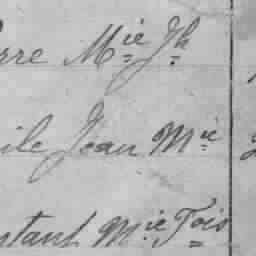 erre Mie Jh
ile Jean Mie
nstant Mie Fois